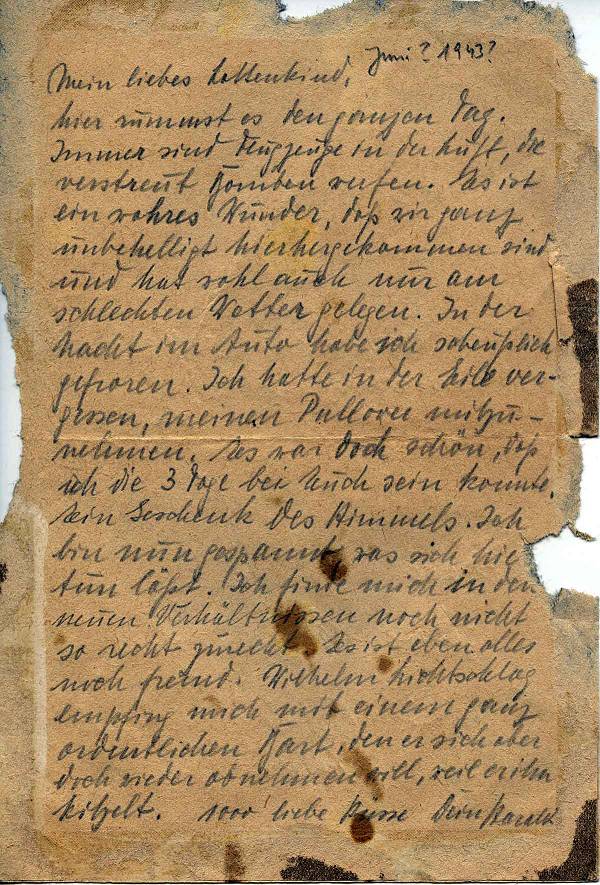 Juni? 1943?
Mein liebes Lottenkind,
hier rummst es den ganzen Tag.
Immer sind Flugzeuge in der Luft, die
verstreut Bomben werfen. Es ist
ein wahres Wunder, daß wir ganz
unbehelligt hierhergekommen sind
und hat wohl auch nur am
schlechten Wetter gelegen. In der
Nacht im Auto habe ich scheußlich
gefroren. Ich hatte in der Eile ver-
gessen, meinen Pullover mitzu-
nehmen. Es war doch schön, daß
ich die 3 Tage bei Euch sein konnte.
Ein Geschenk des Himmels. Ich
bin nun gespannt, was sich hie
tun läßt. Ich finde mich in den
neuen Verhältnissen noch nicht
so recht zurecht. Es ist eben alles
noch fremd. Wilhelm Lichtschlag
empfing mich mit einem ganz
ordentlichen Bart, den er sich aber
doch wieder abnehmen will, weil er ihn
kitzelt. 1000 liebe Küsse Dein